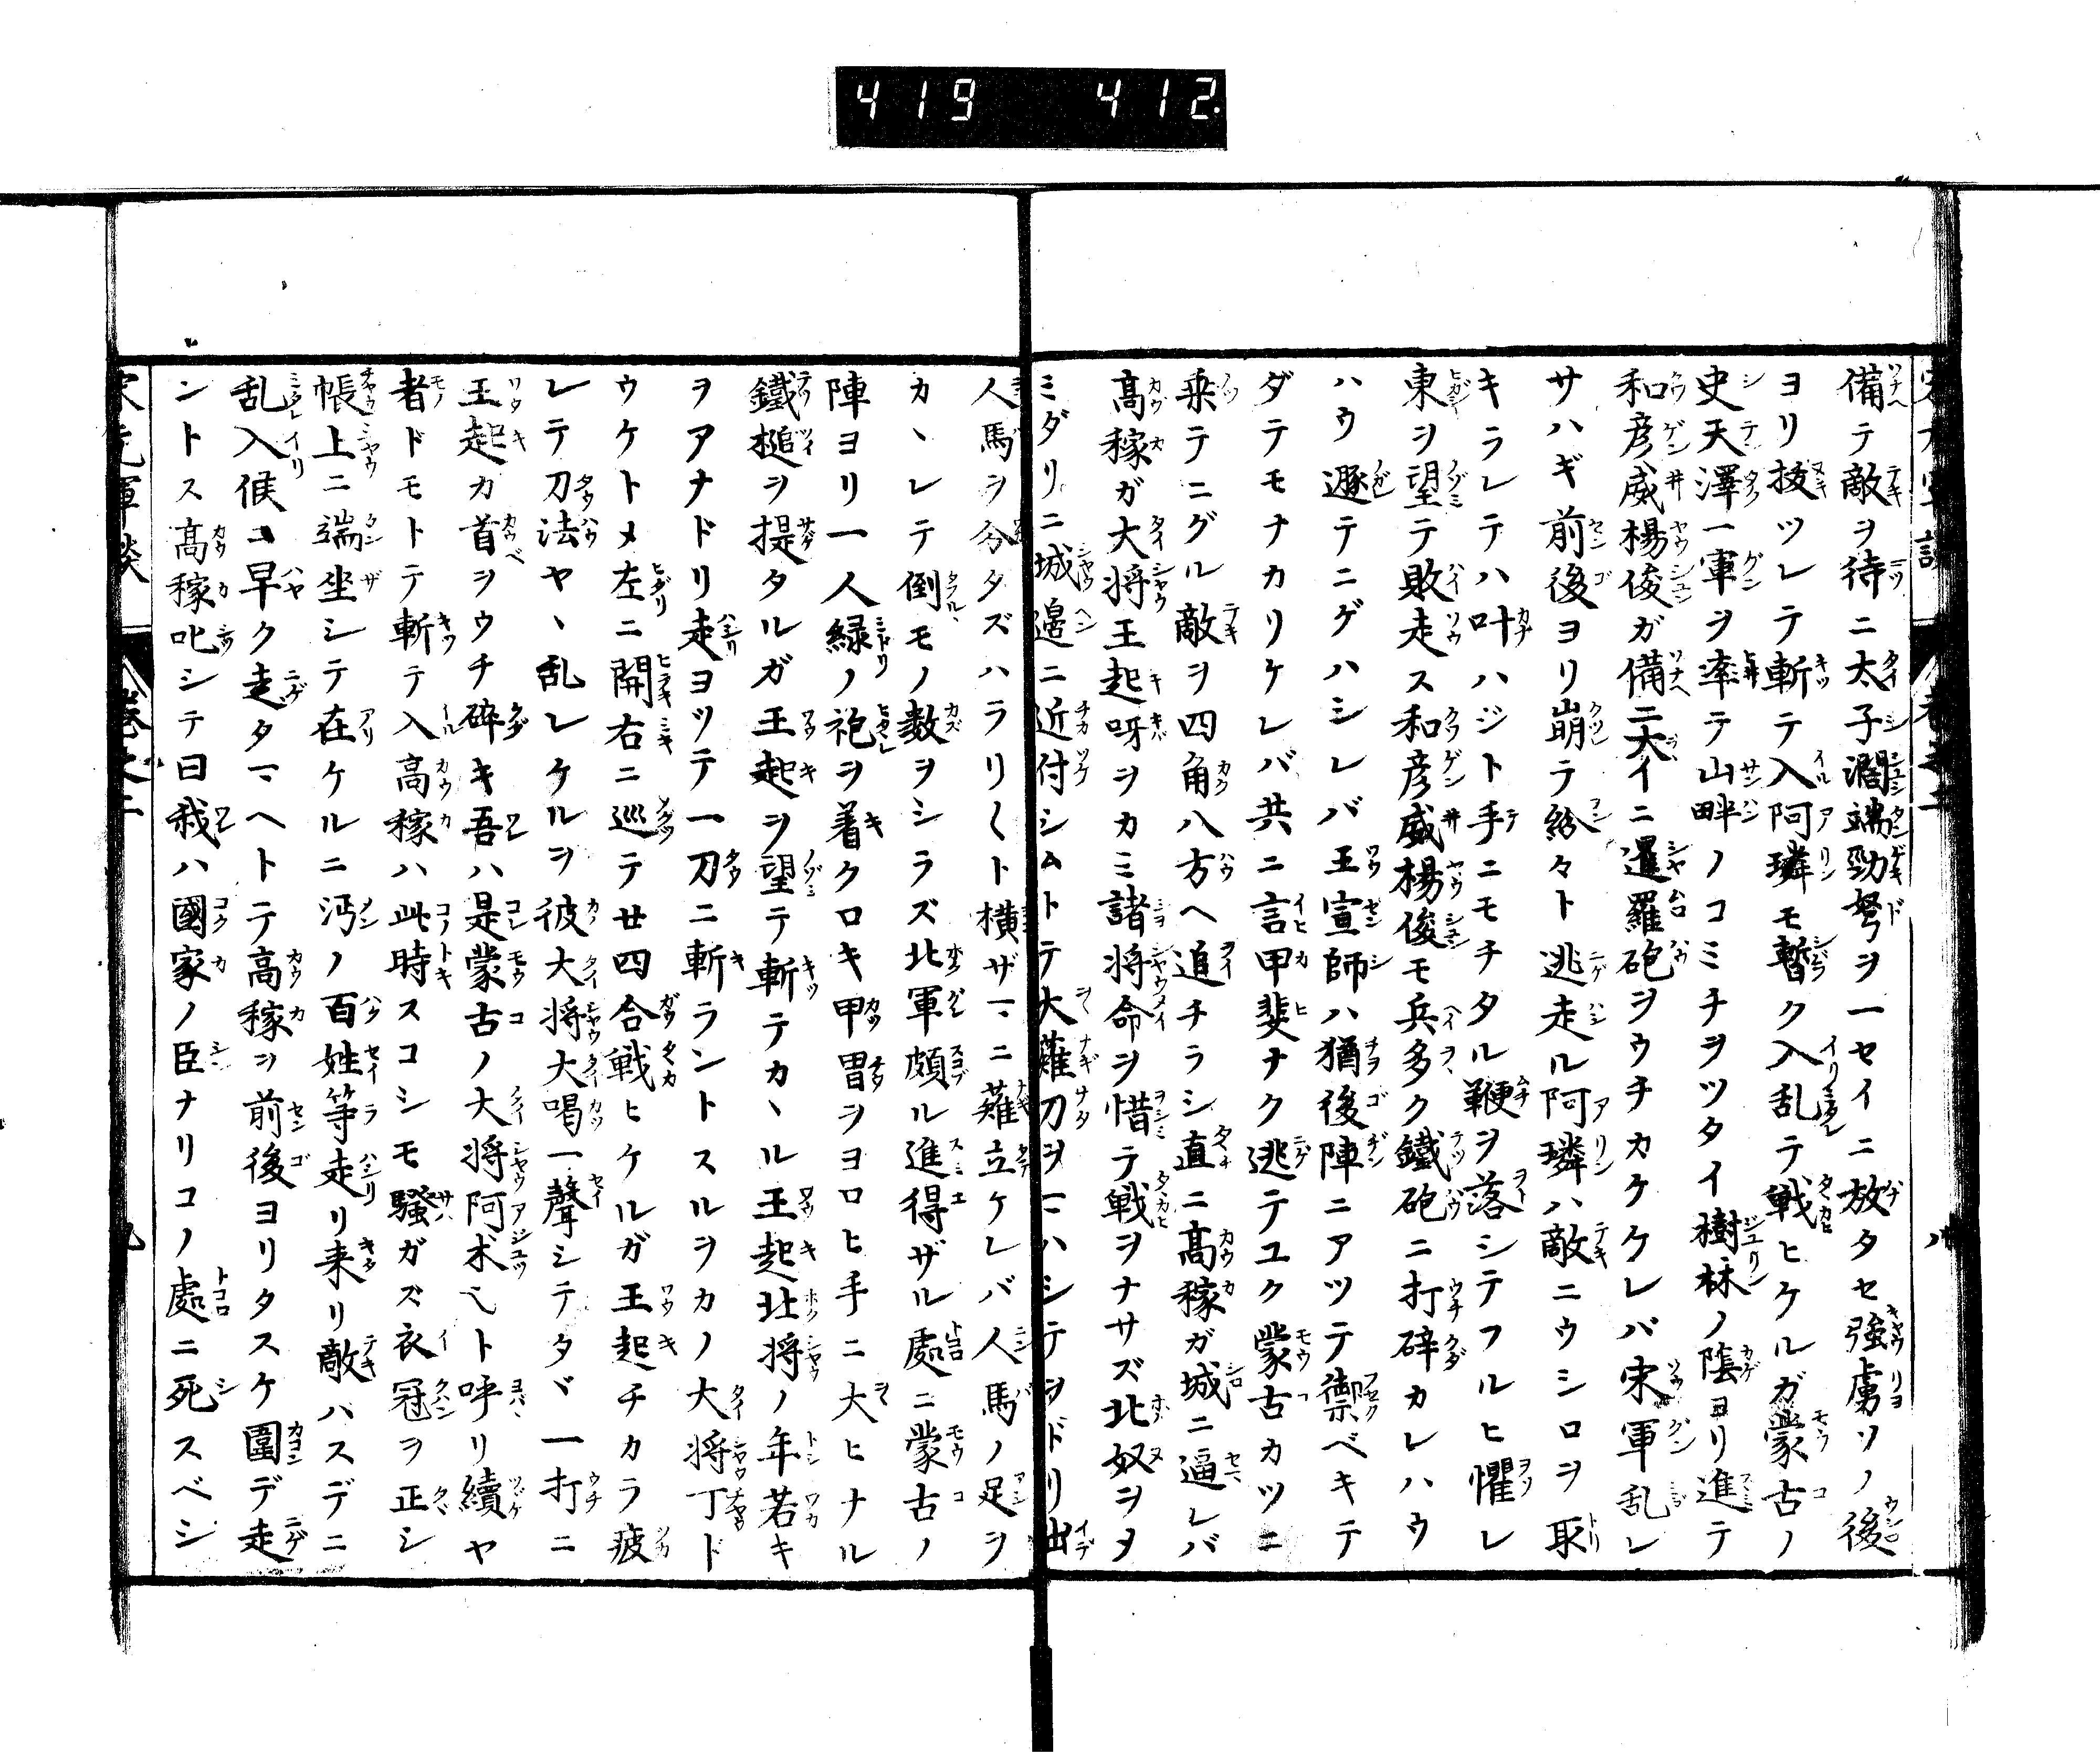 419 412
備テ敵ヲ待ニ太子濶端勁弩ヲ一セイニ放タセ強虜ソノ後
ヨリ抜ツレテ斬テ入阿璘モ暫ク入乱テ戦ヒケルガ蒙古ノ
史天澤一軍ヲ率テ山畔ノコミチヲツタイ樹林ノ陰ヨリ進テ
和彦威楊俊ガ備ニ大イニ暹羅砲ヲウチカケケレバ宋軍乱レ
サハギ前後ヨリ崩テ紛々ト逃走ル阿璘ハ敵ニウシロヲ取
キラレテハ叶ハジト手ニモチタル鞭ヲ落シテフルヒ懼レ
東ヲ望テ敗走ス和彦威楊俊モ兵多ク鐵砲ニ打砕カレハウ
ハウ遯テニゲハシレバ王宣師ハ猶後陣ニアツテ禦ベキテ
ダテモナカリケレバ共ニ言甲斐ナク逃テユク蒙古カツニ
乗テニグル敵ヲ四角八方ヘ追チラシ直ニ高稼ガ城ニ逼レバ
高稼ガ大将王起呀ヲカミ諸将命ヲ惜テ戦ヲナサズ北奴ヲタ
ミダリニ城邉ニ近付シムトテ大薙刀ヲマハシテヲドリ出
人馬ヲ分タズハラリ〱ト横ザマニ薙立ケレバ人馬ノ足ヲ
カヽレテ倒モノ数ヲシラズ北軍頗ル進得ザル處ニ蒙古ノ
陣ヨリ一人緑ノ袍ヲ着クロキ甲冑ヲヨロヒ手ニ大ヒナル
鐵槌ヲ提タルガ王起ヲ望テ斬テカヽル王起北将ノ年若キ
ヲアナドリ走ヨツテ一刀ニ斬ラントスルヲカノ大将丁ド
ウケトメ左ニ開右ニ巡テ廿四合戦ヒケルガ王起チカラ疲
レテ刀法ヤヽ乱レケルヲ彼大将大喝一聲シテタヾ一打ニ
王起カ首ヲウチ砕キ吾ハ是蒙古ノ大将阿朮也ト呼リ續ヤ
者ドモトテ斬テ入高稼ハ此時スコシモ騒ガズ衣冠ヲ正シ
帳上ニ端坐シテ在ケルニ沔ノ百姓等走リ来リ敵ハスデニ
乱入候コ早ク走タマヘトテ高稼ヲ前後ヨリタスケ圍デ走
ントス高稼叱シテ曰我ハ國家ノ臣ナリコノ處ニ死スベシ
宋元軍談 巻之二 九